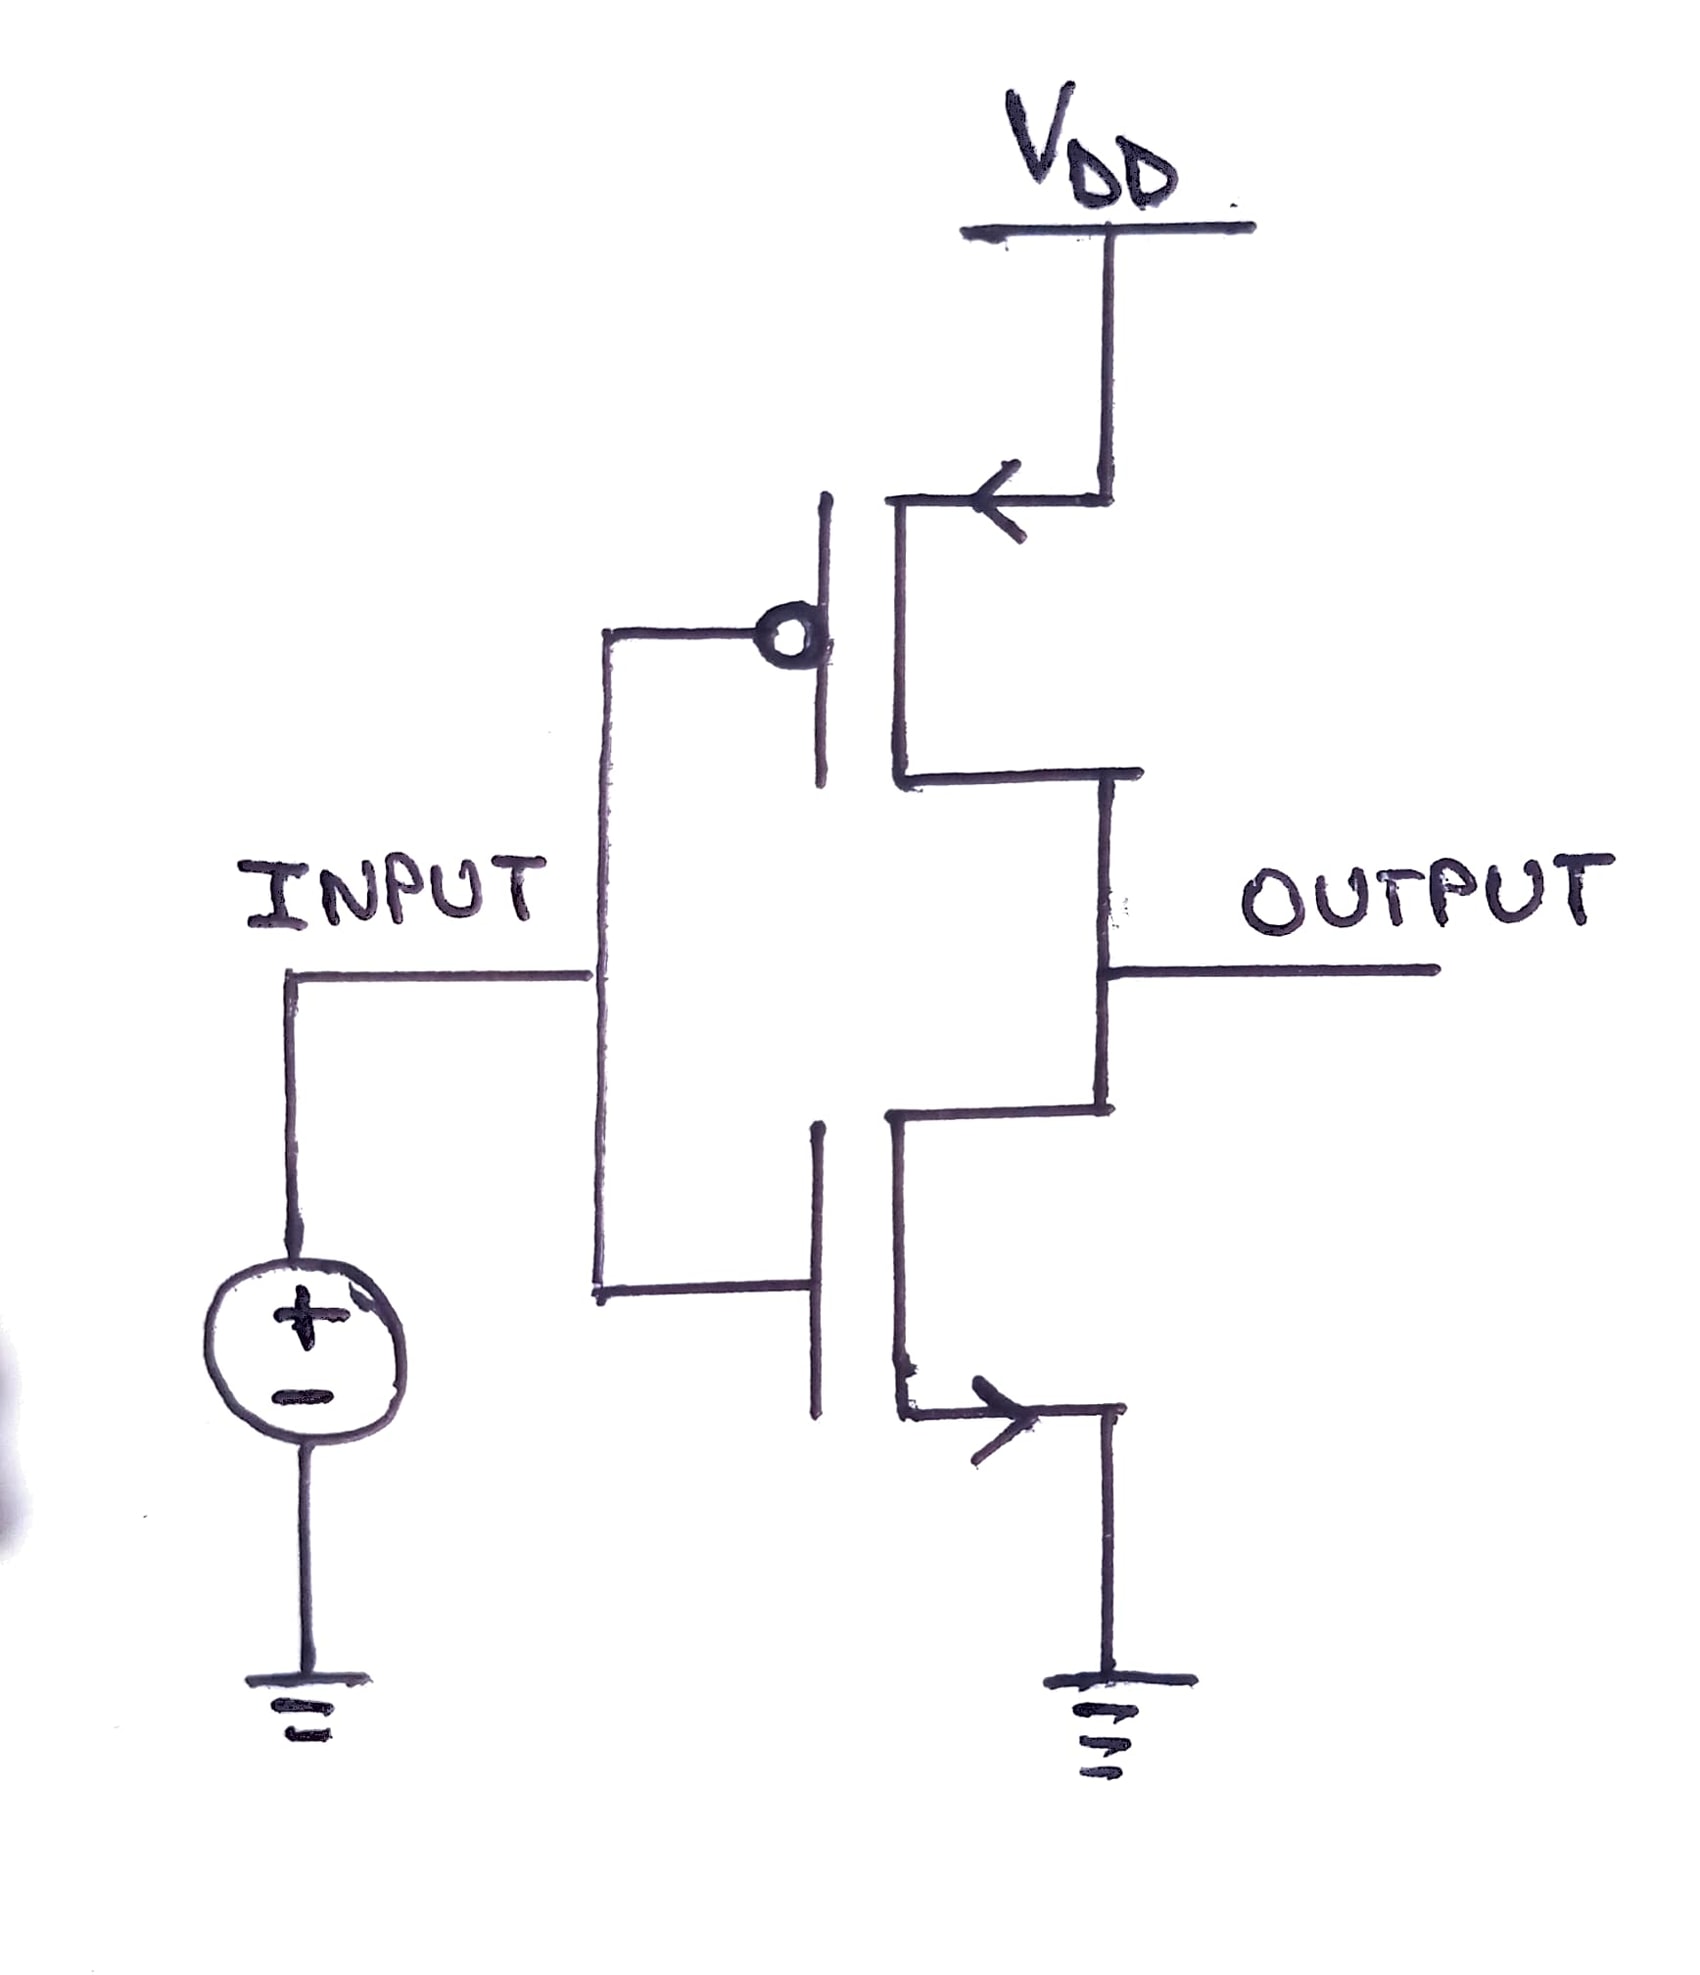 VDD
INPUT
OUTPUT
+
-